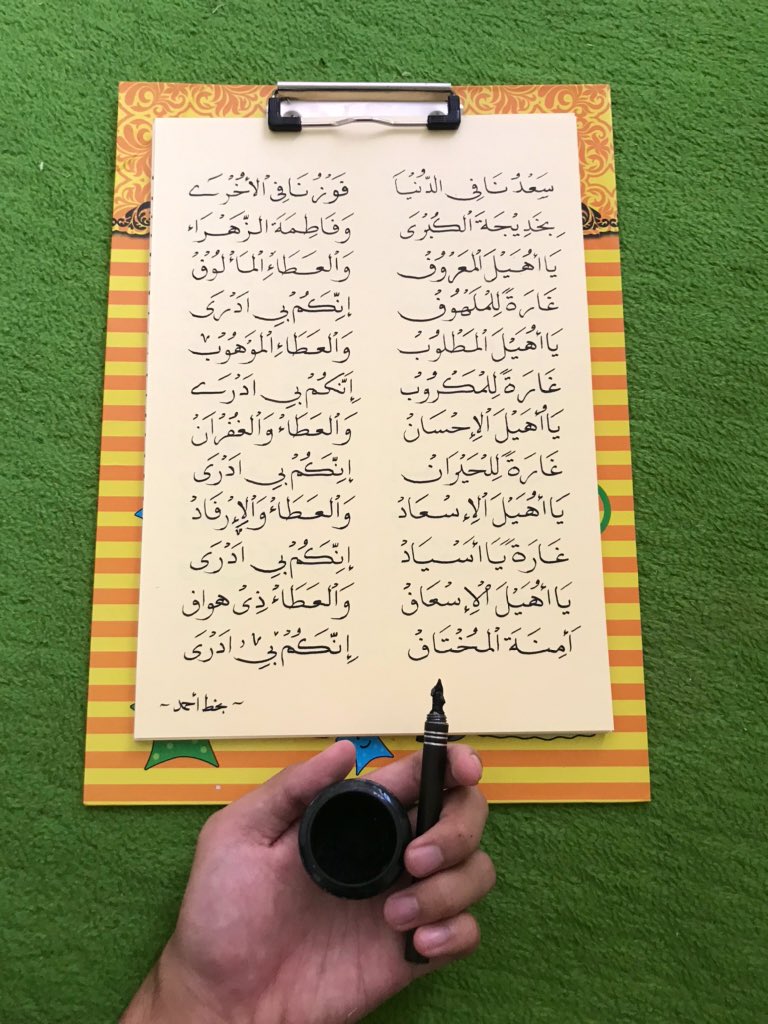 سَعْدُنَا فِي الدُّنْيَا فَوْزُنَا فِي الْأُخْرَى
بِخَدِيْجَةَ الْكُبْرَى وَفَاطِمَةَ الزَّهْرَاء
يَا اُهَيْلَ الْمَعْرُوْفْ وَالْعَطَاءِ الْمَأْلُوْفْ
غَارَةً لِلْمَلْهُوْفْ اِنَّكُمْ بِي اَدْرَى
يَا اُهَيْلَ الْمَطْلُوْبْ وَالْعَطَاءِ الْمَوْهُوْبْ
غَارَةً لِلْمَكْرُوْبْ اِنَّكُمْ بِي اَدْرَى
يَا اُهَيْلَ الْإِحْسَانْ وَالْعَطَاءُ وَالْغُفْرَانْ
غَارَةً لِلْحَيْرَانْ اِنَّكُمْ بِي اَدْرَى
يَا اُهَيْلَ الْاِسْعَادْ وَالْعَطَاءُ وَالْاِرْفَادْ
غَارَةً يَا اَسْيَادْ اِنَّكُمْ بِي اَدْرَى
يَا اُهَيْلَ الْاِسْعَافْ وَالْعَطَاءُ ذِي هواف
اَمِنَةَ الْمُخْتَاقْ اِنَّكُمْ بِي اَدْرَى
~ بخط أحمد ~